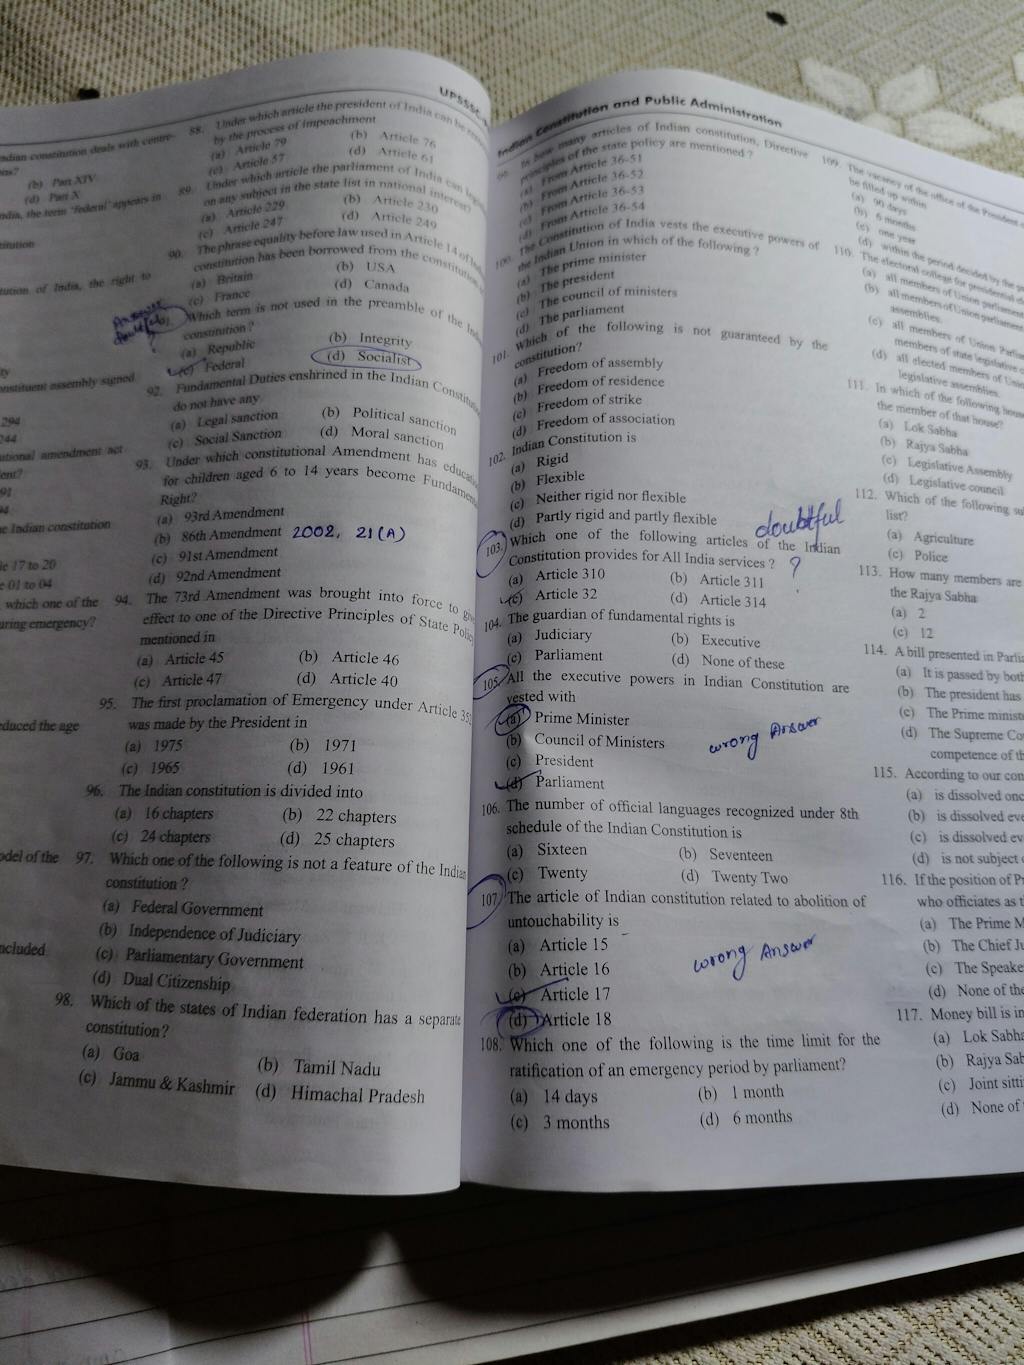 UPSSSC
ndian constitution deals with centre-
ns?
(b) Part XIV
(d) Part X
ndia, the term 'federal' appears in
titution
tution of India, the right to
nstituent assembly signed
294
244
utional amendment act
ent?
91
94
e Indian constitution
le 17 to 20
e 01 to 04
which one of the
uring emergency?
educed the age
odel of the
ncluded
88. Under which article the president of India can be
by the process of impeachment
(a) Article 79 (b) Article 76
(c) Article 57 (d) Article 61
89. Under which article the parliament of India can
on any subject in the state list in national interest)
(a) Article 229 (b) Article 230
(c) Article 247 (d) Article 249
90. The phrase equality before law used in Article 14 of
constitution has been borrowed from the constitution
(a) Britain (b) USA
(c) France (d) Canada
Answer
doubt
?
Which term is not used in the preamble of the
constitution?
(a) Republic (b) Integrity
(c) Federal (d) Socialist
92. Fundamental Duties enshrined in the Indian Constitu
do not have any
(a) Legal sanction (b) Political sanction
(c) Social Sanction (d) Moral sanction
93. Under which constitutional Amendment has educa
for children aged 6 to 14 years become Fundamen
Right?
(a) 93rd Amendment
(b) 86th Amendment 2002, 21(A)
(c) 91st Amendment
(d) 92nd Amendment
94. The 73rd Amendment was brought into force to
effect to one of the Directive Principles of State
mentioned in
(a) Article 45 (b) Article 46
(c) Article 47 (d) Article 40
95. The first proclamation of Emergency under Article
was made by the President in
(a) 1975 (b) 1971
(c) 1965 (d) 1961
96. The Indian constitution is divided into
(a) 16 chapters (b) 22 chapters
(c) 24 chapters (d) 25 chapters
97. Which one of the following is not a feature of the Indian
constitution ?
(a) Federal Government
(b) Independence of Judiciary
(c) Parliamentary Government
(d) Dual Citizenship
98. Which of the states of Indian federation has a separate
constitution?
(a) Goa (b) Tamil Nadu
(c) Jammu & Kashmir (d) Himachal Pradesh
Indian Constitution and Public Administration
In how many articles of Indian constitution, Directive
principles of the state policy are mentioned ?
(a) From Article 36-51
(b) From Article 36-52
(c) From Article 36-53
(d) From Article 36-54
100. The Constitution of India vests the executive powers of
the Indian Union in which of the following ?
(a) The prime minister
(b) The president
(c) The council of ministers
(d) The parliament
101. Which of the following is not guaranteed by the
constitution?
(a) Freedom of assembly
(b) Freedom of residence
(c) Freedom of strike
(d) Freedom of association
102. Indian Constitution is
(a) Rigid
(b) Flexible
(c) Neither rigid nor flexible
(d) Partly rigid and partly flexible
doubtful
?
103. Which one of the following articles of the Indian
Constitution provides for All India services ?
(a) Article 310 (b) Article 311
(c) Article 32 (d) Article 314
104. The guardian of fundamental rights is
(a) Judiciary (b) Executive
(c) Parliament (d) None of these
105. All the executive powers in Indian Constitution are
vested with
(a) Prime Minister
(b) Council of Ministers
(c) President
(d) Parliament
wrong Answer
106. The number of official languages recognized under 8th
schedule of the Indian Constitution is
(a) Sixteen (b) Seventeen
(c) Twenty (d) Twenty Two
107. The article of Indian constitution related to abolition of
untouchability is
(a) Article 15
(b) Article 16
(c) Article 17
(d) Article 18
wrong Answer
108. Which one of the following is the time limit for the
ratification of an emergency period by parliament?
(a) 14 days (b) 1 month
(c) 3 months (d) 6 months
109. The vacancy of the office of the President
be filled up within
(a) 90 days
(b) 6 months
(c) one year
(d) within the period decided by the
110. The electoral college for presidential
(a) all members of Union parliament
(b) all members of Union parliament
assemblies.
(c) all members of Union
members of state legislative
(d) all elected members of
legislative assemblies.
111. In which of the following
the member of that house?
(a) Lok Sabha
(b) Rajya Sabha
(c) Legislative Assembly
(d) Legislative council
112. Which of the following su
list?
(a) Agriculture
(c) Police
113. How many members are
the Rajya Sabha
(a) 2
(c) 12
114. A bill presented in Parli
(a) It is passed by both
(b) The president has
(c) The Prime minist
(d) The Supreme Co
competence of th
115. According to our con
(a) is dissolved onc
(b) is dissolved eve
(c) is dissolved ev
(d) is not subject
116. If the position of Pr
who officiates as t
(a) The Prime M
(b) The Chief Ju
(c) The Speake
(d) None of the
117. Money bill is in
(a) Lok Sabha
(b) Rajya Sab
(c) Joint sitti
(d) None of